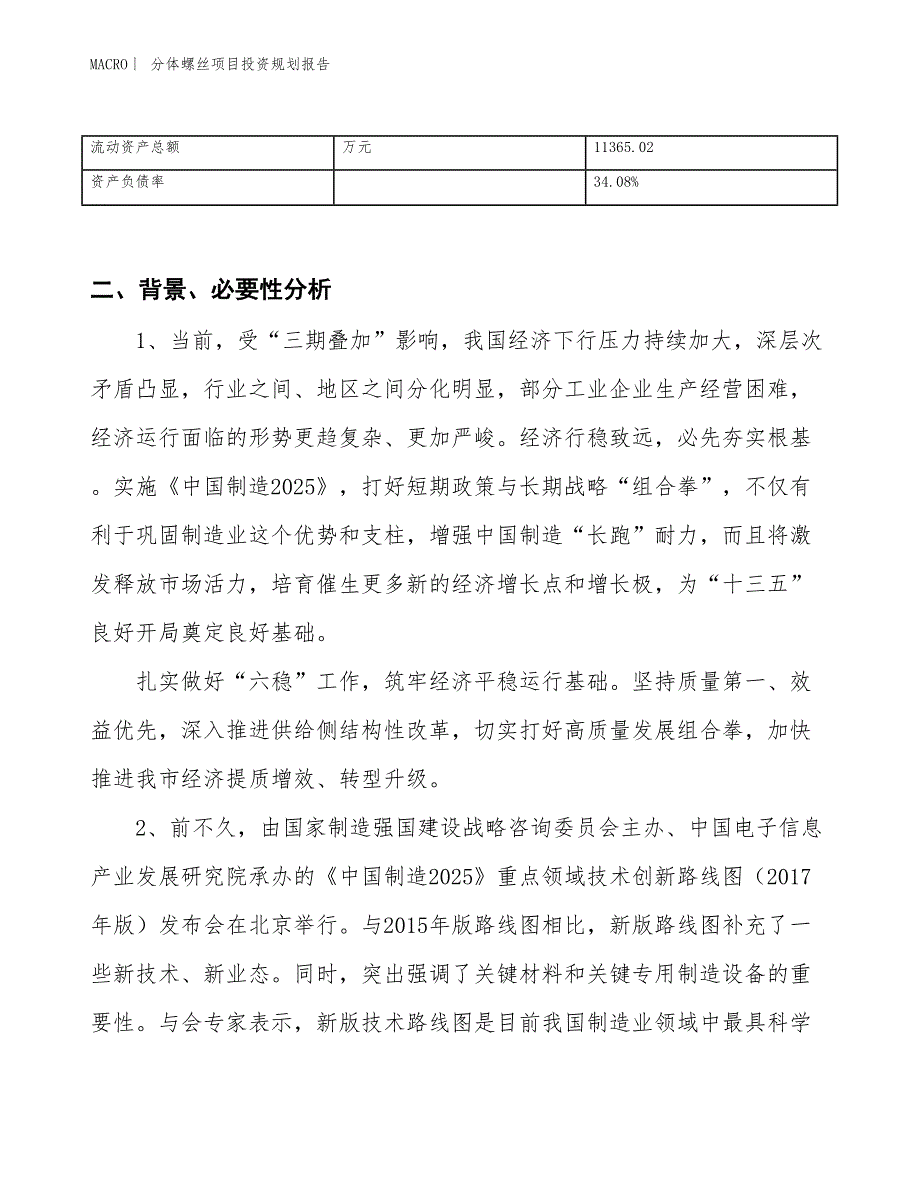 MACRO｜ 分体螺丝项目投资规划报告
流动资产总额 万元 11365.02
资产负债率 34.08%
二、背景、必要性分析
1、当前，受“三期叠加”影响，我国经济下行压力持续加大，深层次
矛盾凸显，行业之间、地区之间分化明显，部分工业企业生产经营困难，
经济运行面临的形势更趋复杂、更加严峻。经济行稳致远，必先夯实根基
。实施《中国制造2025》，打好短期政策与长期战略“组合拳”，不仅有
利于巩固制造业这个优势和支柱，增强中国制造“长跑”耐力，而且将激
发释放市场活力，培育催生更多新的经济增长点和增长极，为“十三五”
良好开局奠定良好基础。
扎实做好“六稳”工作，筑牢经济平稳运行基础。坚持质量第一、效
益优先，深入推进供给侧结构性改革，切实打好高质量发展组合拳，加快
推进我市经济提质增效、转型升级。
2、前不久，由国家制造强国建设战略咨询委员会主办、中国电子信息
产业发展研究院承办的《中国制造2025》重点领域技术创新路线图（2017
年版）发布会在北京举行。与2015年版路线图相比，新版路线图补充了一
些新技术、新业态。同时，突出强调了关键材料和关键专用制造设备的重
要性。与会专家表示，新版技术路线图是目前我国制造业领域中最具科学